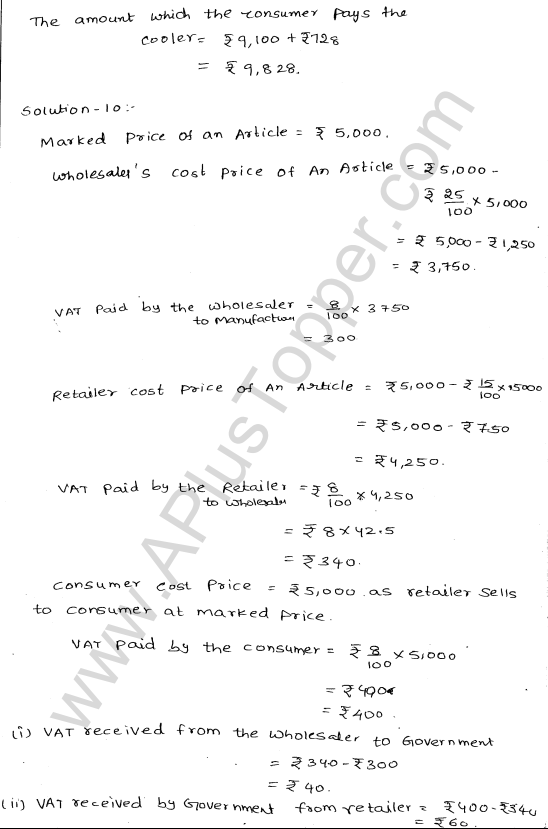 The amount which the consumer pays the
cooler = ₹9,100 + ₹728
= ₹9,828.
Solution-10:-
Marked Price of an Article = ₹ 5,000.
Wholesaler's cost price of An Article = ₹5,000 -
₹ 25/100 × 5,000
= ₹ 5,000 - ₹1,250
= ₹ 3,750.
VAT Paid by the wholesaler = 8/100 × 3750
to Manufacturer
= 300
Retailer cost price of An Article = ₹5,000 - ₹ 15/100 × 5000
= ₹5,000 - ₹750
= ₹4,250.
VAT Paid by the Retailer = ₹ 8/100 × 4,250
to wholesaler
= ₹ 8 × 42.5
= ₹340.
Consumer cost Price = ₹5,000 as retailer sells
to consumer at marked price.
VAT paid by the consumer = ₹ 8/100 × 5,000
= ₹400
= ₹400.
(i) VAT received from the wholesaler to Government
= ₹340 - ₹300
= ₹ 40.
(ii) VAT received by Government from retailer = ₹400 - ₹340
= ₹60.
www.APlusTopper.com